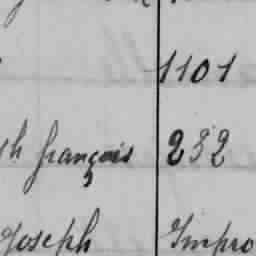 1101
ph françois 232
Joseph Impro